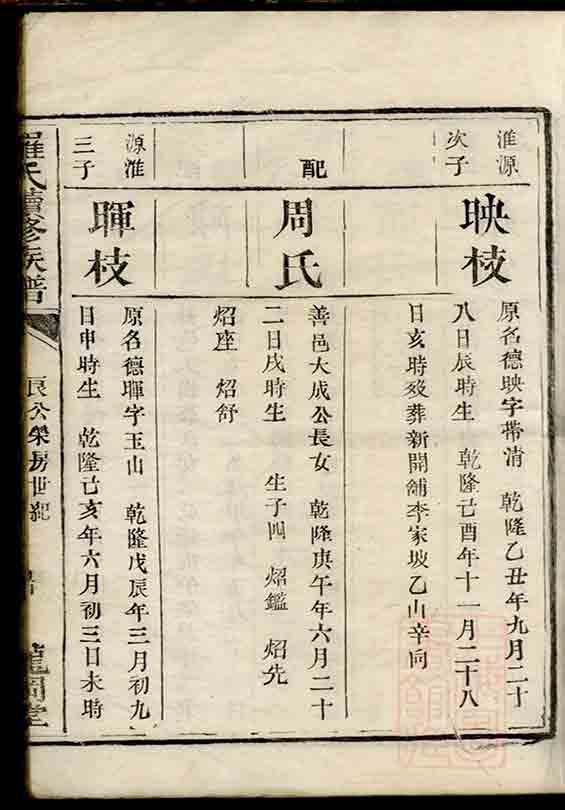 淮源
次子
映枝
原名德映字帶清 乾隆乙丑年九月二十
八日辰時生 乾隆己酉年十一月二十八
日亥時歿葬新開舖李家坡乙山辛向
配
周氏
善邑大成公長女 乾隆庚午年六月二十
二日戌時生 生子四 炤鑑 炤先
炤座 炤舒
源淮
三子
暉枝
原名德暉字玉山 乾隆戊辰年三月初九
日申時生 乾隆己亥年六月初三日未時
羅氏續修族譜
良公榮房世紀
龍岡堂